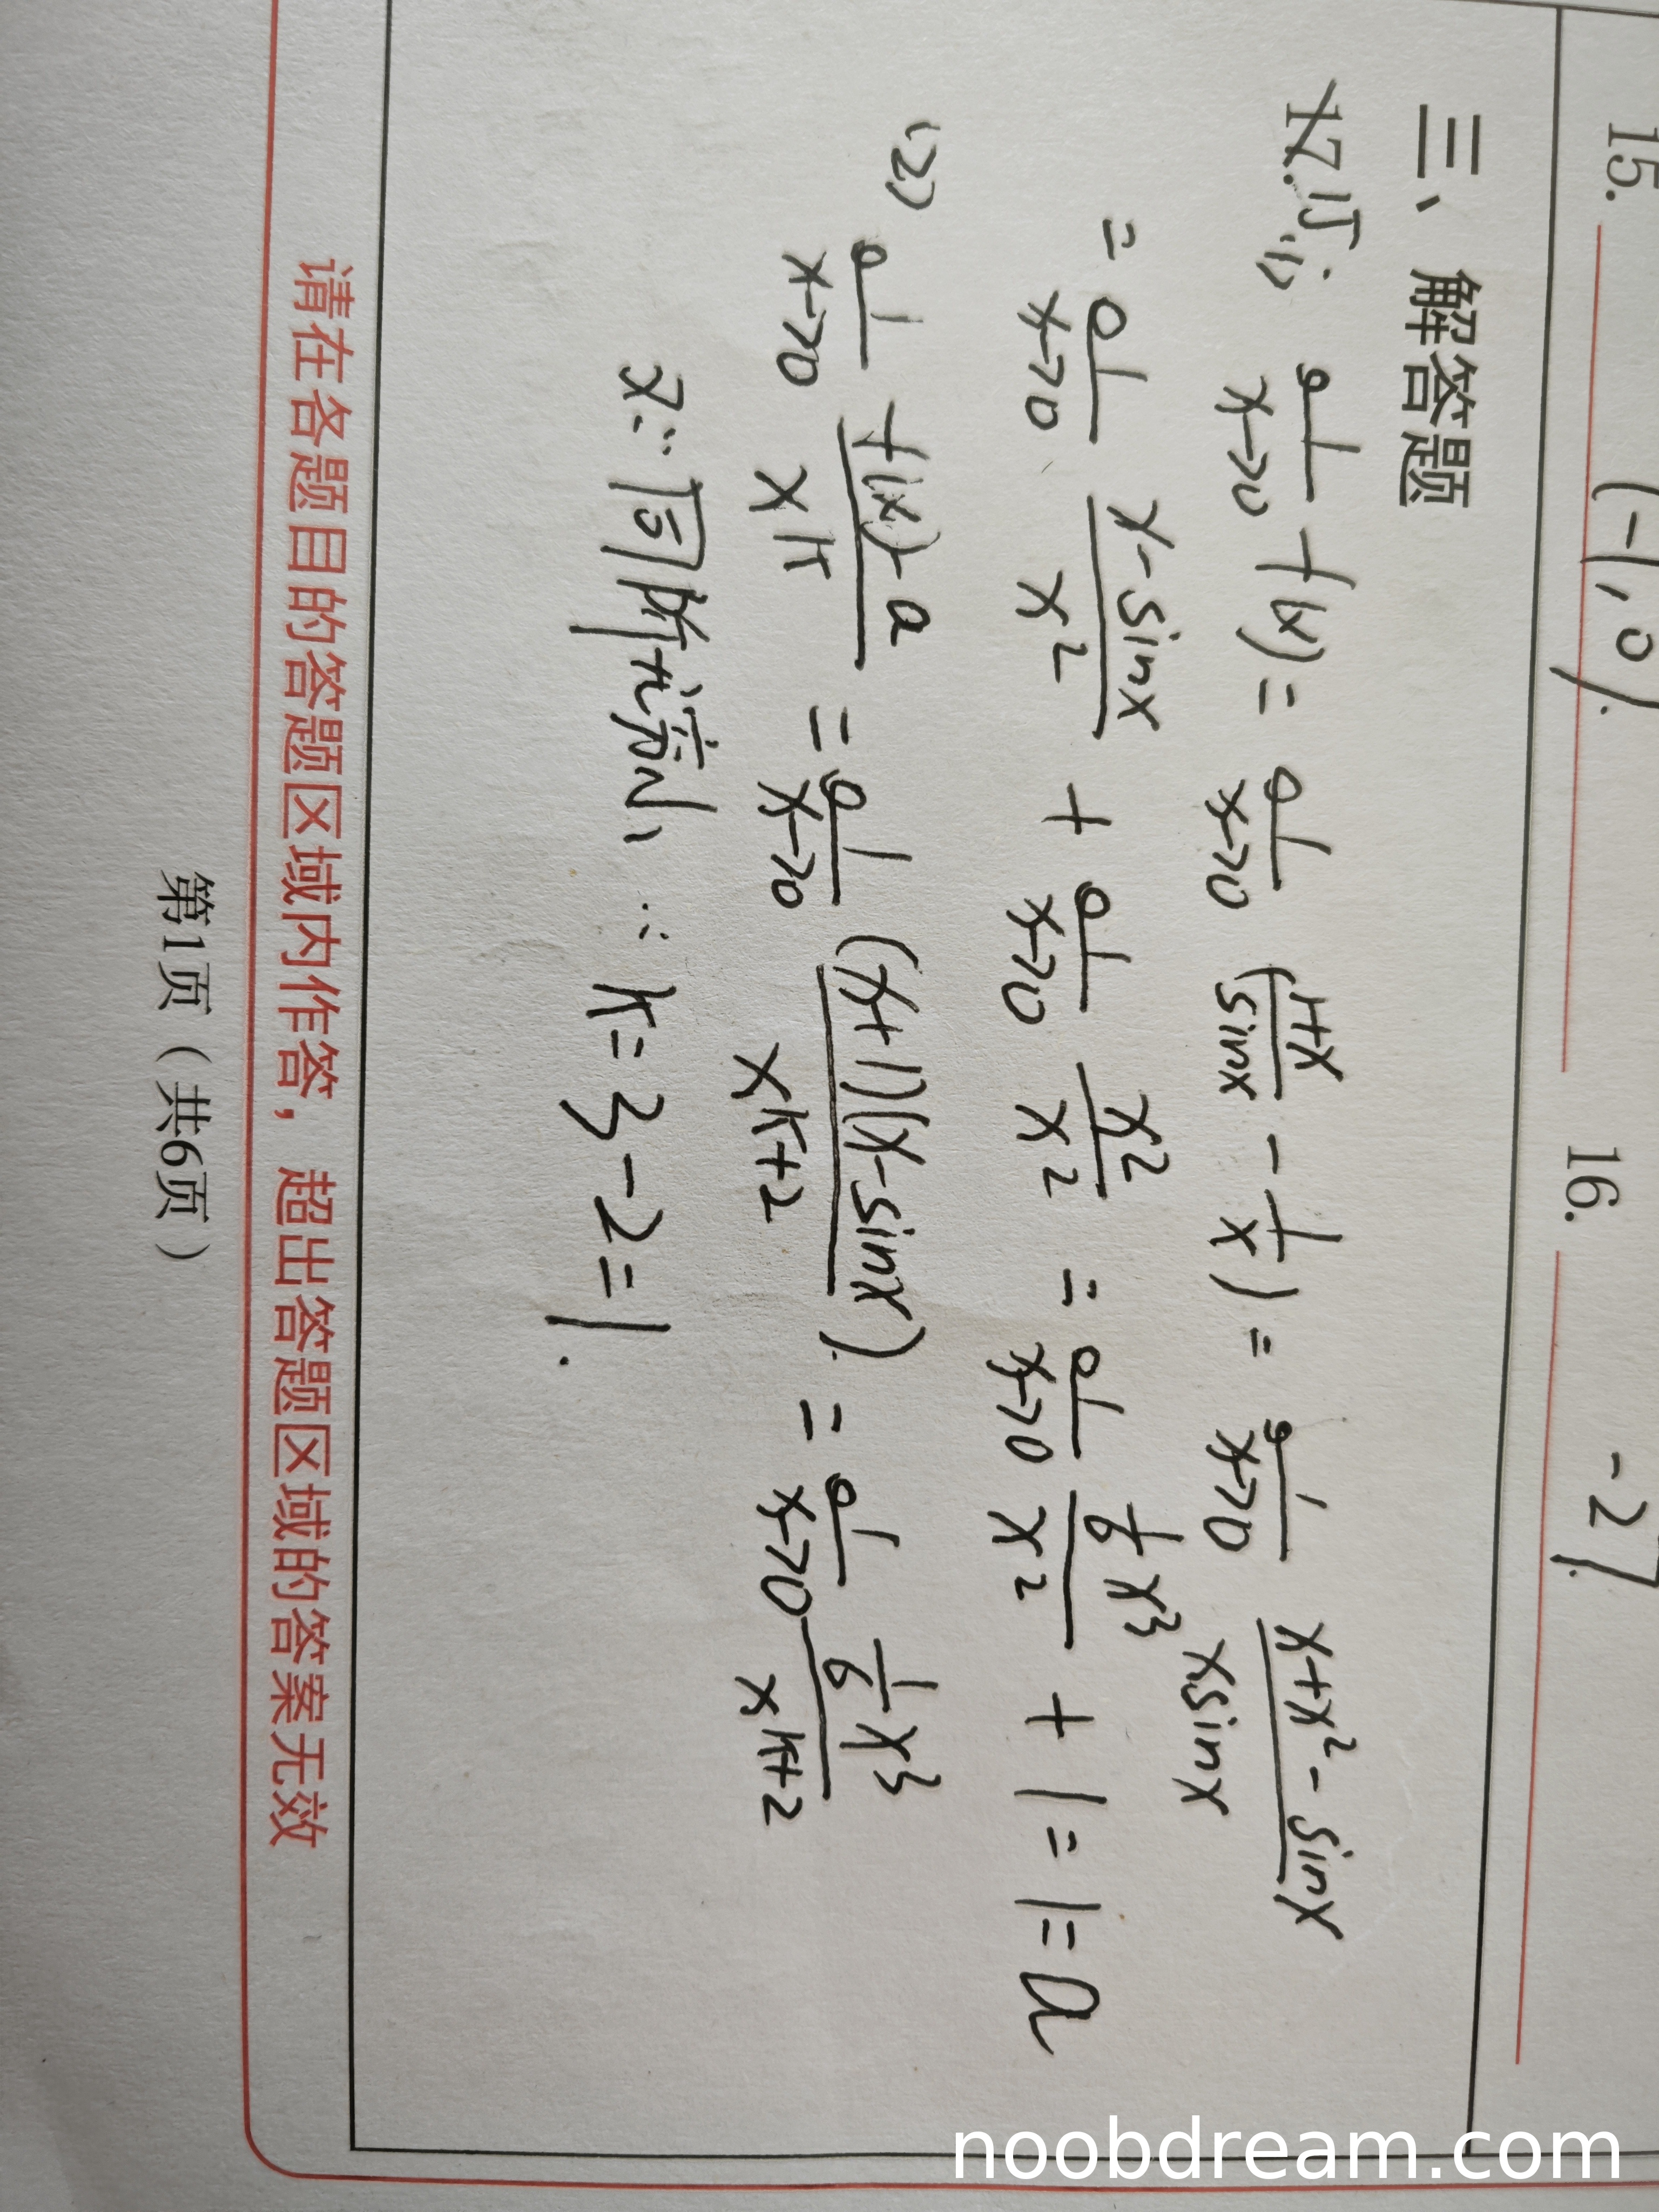 15. (-1,0). 16. -2.
三、解答题
17. 15. (1) lim x→0 f(x) = lim x→0 (1+x/sinx - 1/x) = lim x→0 x+x²-sinx / xsinx
= lim x→0 x-sinx / x² + lim x→0 x²/x² = lim x→0 1/6 x³ / x² + 1 = 1 = a
(2) lim x→0 f(x)-a / x^k = lim x→0 (x+1)(x-sinx) / x^k+2 = lim x→0 1/6 x³ / x^k+2
又∵同阶无穷小 ∴ k=3-2=1.
请在各题目的答题区域内作答，超出答题区域的答案无效
第1页（共6页）
noobdream.com